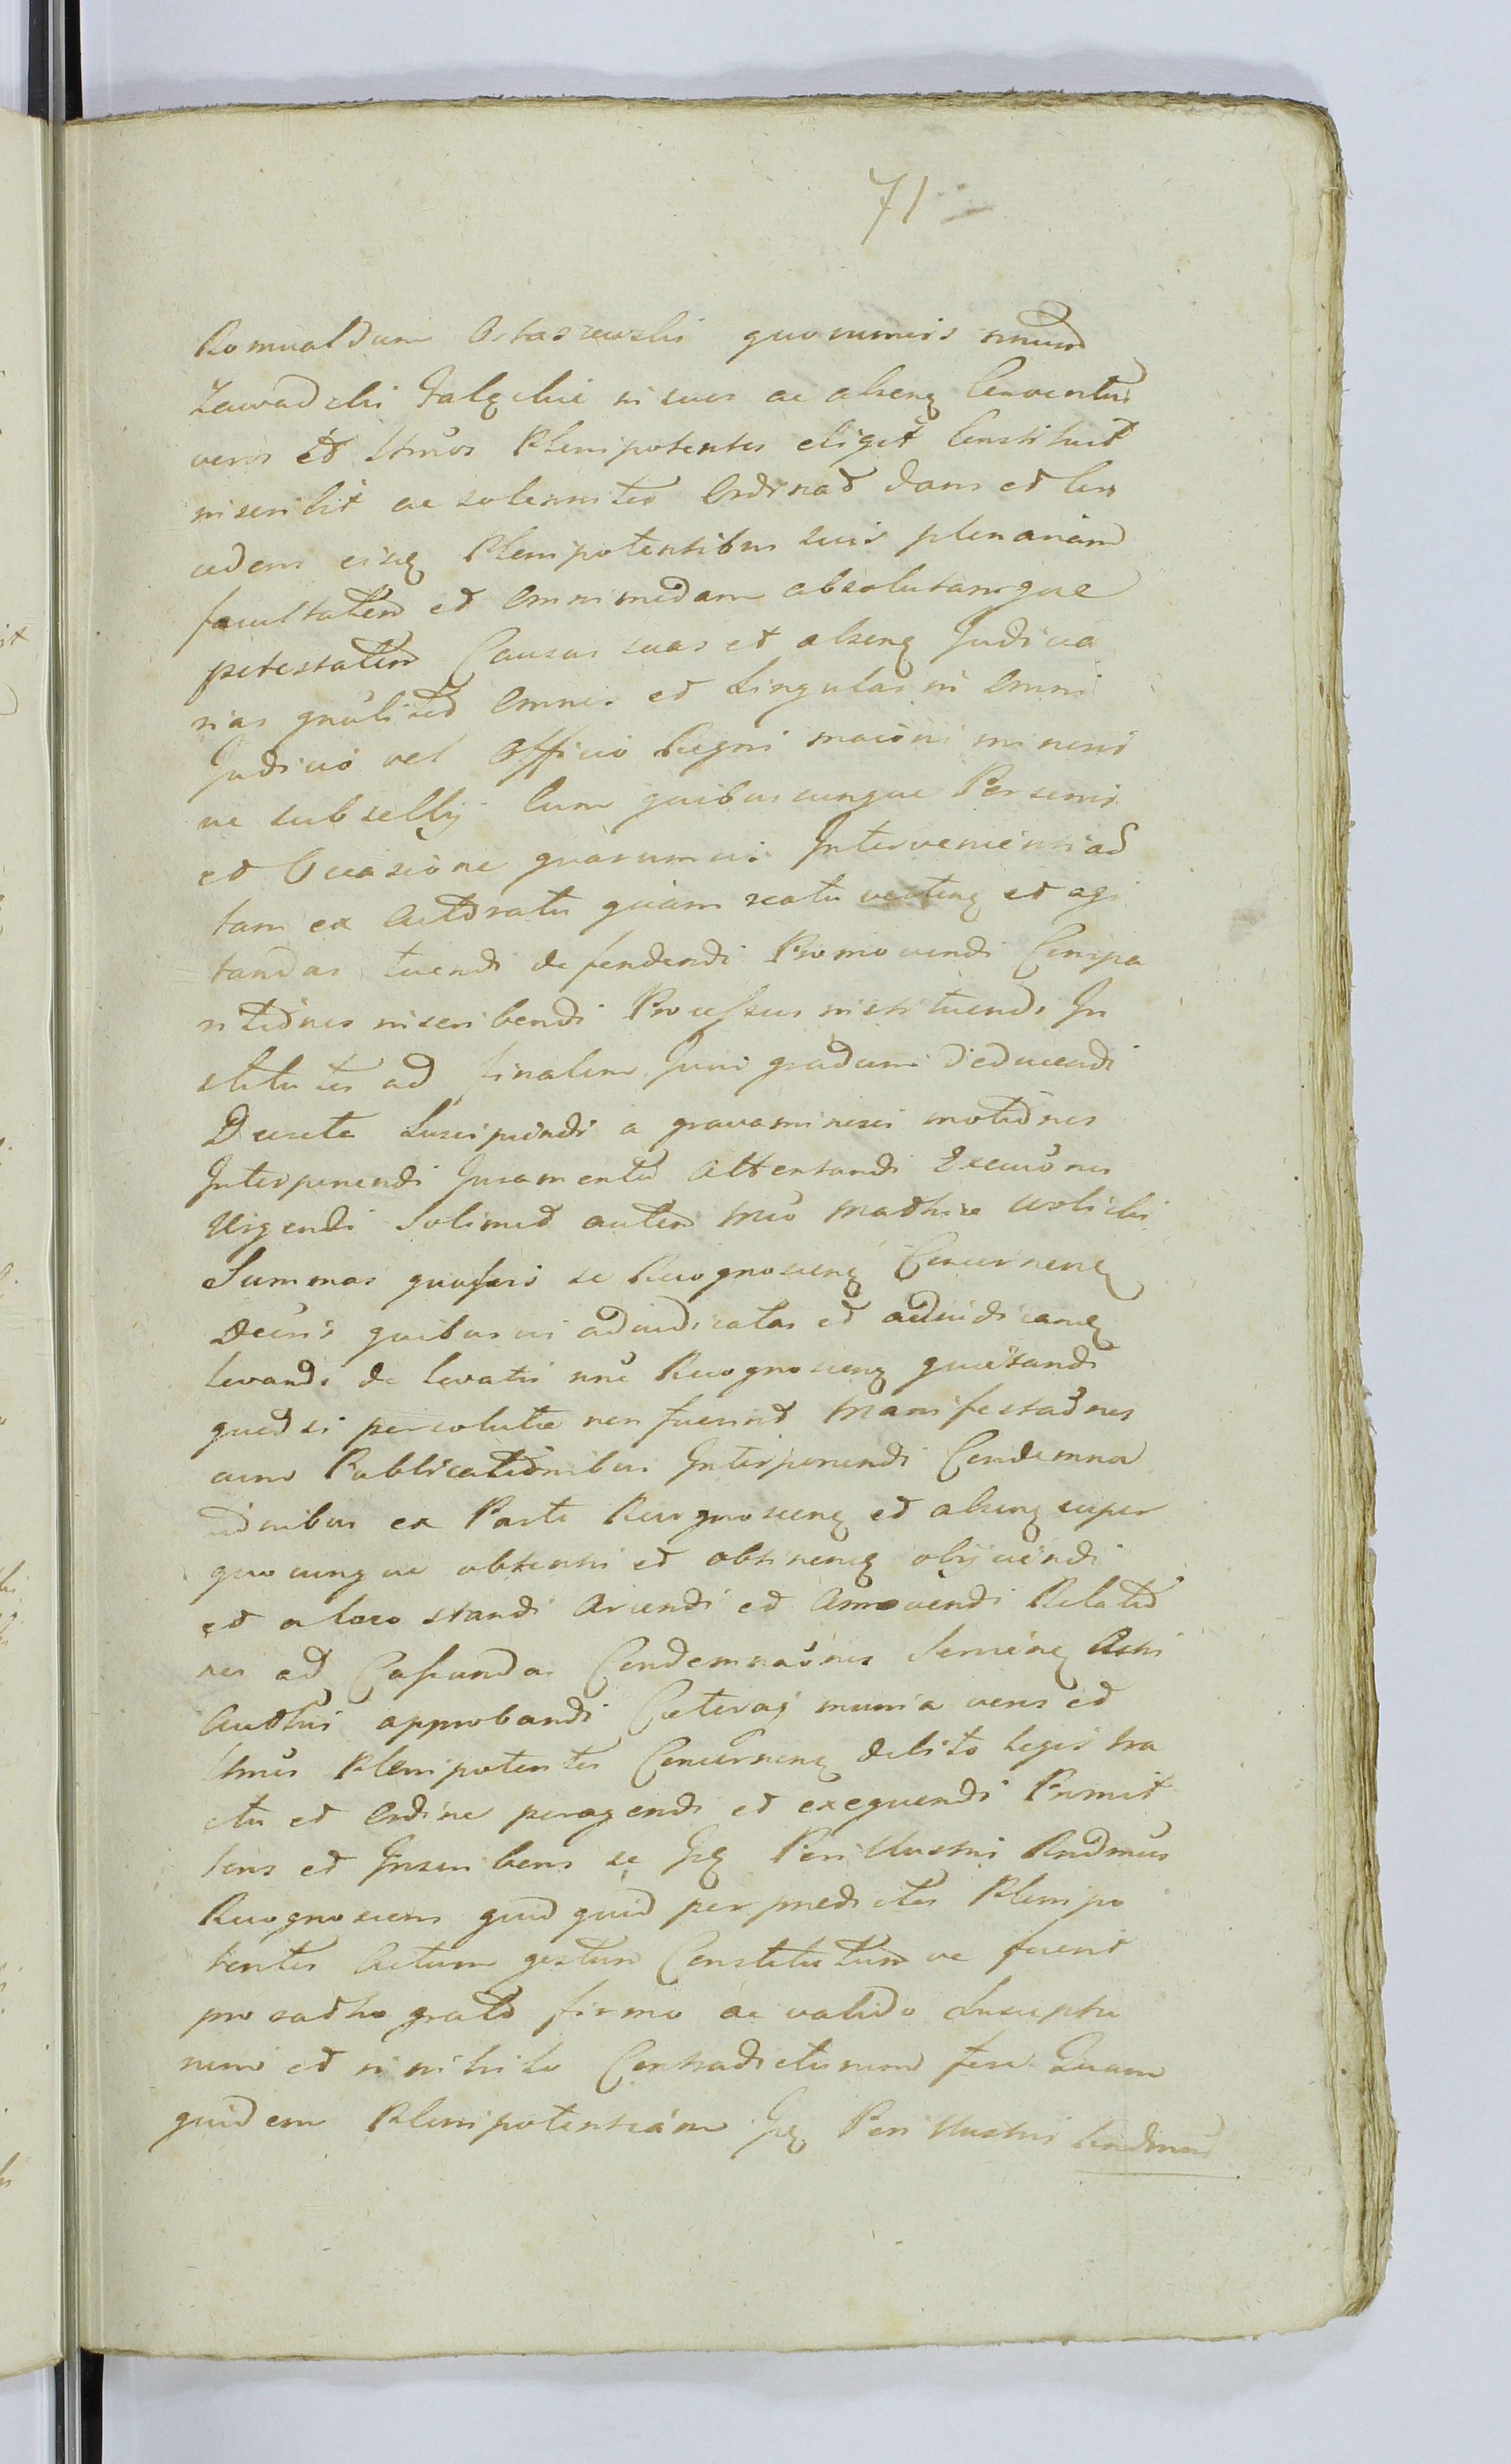 71
Romualdum Ostaszewski quorumvis
Zawadzki Jalęckie in suos ac alsenę Conventus
veros et Ltmos Plenipotentes eligit Constituit
inscribit ac solenniter Ordinat dans et Con
cedens eisdę Plenipotentibus suis plenariam
facultatem et Omnimodam absolutamque
potestatem Causas suas et alsenę Judicia
rias gnaliter Omnes et Singulas in Omni
Judicio vel Officio Regni maiori minori
ve subsellij Cum quibuscunque Personis
et Occasione quarumvis Interveniensiad
tam ex Actoratu quam reatu vertenę et agi
tandas tuendi defendendi Promovendi Compa
ritiones inscribendi Processus instituendi In
stitutos ad finalem Juris gradum deducendi
Decreta Suscipiendi a gravaminosis motiones
Interponendi Juramenta Attentandi Execuones
Urgendi Solimet autem Mco Mathia Wolicki
Summas quasvis se Recognoscenę Concernenę
Decris quibusvis adiudicatas et adiudicanę
levandi de levatis nne Recognoscenę quietandi
quod si persolutae non fuerint Manifestaones
cum Publicationibus Interponendi Condemna
tionibus ex Parte Recognoscenę et alsenę super
quocunque obtentis et obtinenę obijciendi
et a loco standi Arcendi et Amovendi Relatio
nes ad Cassandas Condemnaones Servienę Actis
Authis approbandi Caeteraq munia veris et
Ltmis Plenipotentes Concernenę debito legis tra
ctu et Ordine peragendi et exequendi Promit
tens et Inscribens se Ipę Perillustris Rndmus
Recognoscens quid quid per praedictos Plenipo
tentes Actum gestum Constitutum ve fuerit
pro ratho grato firmo ac valido Susceptu
rum et in nihilo Contradicturum fore Quam
quidem Plenipotentiam Ipę Perillustris Rndmus